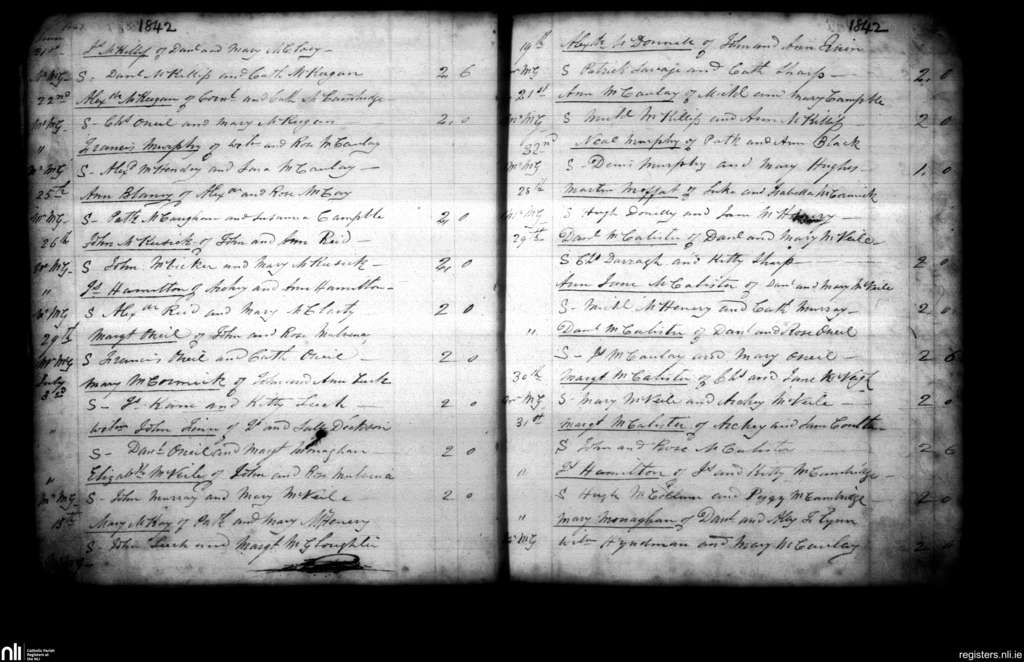 1842
21st Js McKillip of Danl and Mary McElroy
Mr McG S- Danl McKillip and Cath McKeegan 2 6
22nd Alexdr McKeegan of and Cath McCambridge
Mr McG S- Chs Oneil and Mary McKeegan 2 0
" Francis Murphy of and Rose McCaulay
Mr McG S- Alexr and McCaulay
25th Ann Blaney of Alexdr and Rose McCoy
Mr McG S- Patk McCaughan and Susanna Campble 2 0
26th John McKusick of John and Ann Reid
Mr McG S John McVicker and Mary McKusick 2 0
" Js Hamilton of Archy and Ann Hamilton
Mr McG S Alexdr Reid and Mary McClarty 2 0
29th Margt Oneil of John and Rose
Mr McG S Francis Oneil and Cath Oneil 2 0
July 3rd Mary McCormick of John and Ann
S- Js Kane and Kitty 2 0
" John of Ps and Dickson
S- Danl Oneil and Margt Monaghan 2 0
" Elizabth McVeile of John and Rose
Mr McG S- John Murray and Mary McVeile 2 0
18th Mary McKay of Patk and Mary McHenery
S- John and Margt McGloughlin
1842
19th Alexdr McDonnell of John and Ann Quin
Mr McG S Patrick Savage and Cath Sharp 2 0
21st Ann McCaulay of Michl and Mary Campble
Mr McG S Michl McKillip and Ann McKillip 2 0
22nd Neal Murphy of Patk and Ann Black
Mr McG S- Denis Murphy and Mary Hughes 1 0
28th Martin Moffat of Luke and Isabella McCormick
Mr McG S Hugh Donelly and Jane McHenry
29th Danl McCalister of Danl and Mary McVeile
S Chs Darragh and Kitty Sharp 2 0
Ann Jane McCalister of Danl and Mary McVeile
S- Michl McHenery and Cath Murray 2 0
" Danl McCalister of Danl and Rose Oneil
S- Js McCaulay and Mary Oneil 2 6
30th Margt McCalister of Chs and Jane McVeigh
Mr McG S- Mary McVeile and Archey McVeile 2 0
31st Margt McCalister of Archey and Jane
S John and Rose McCalister 2 6
" Js Hamilton of Js and Kitty McCambridge
S Hugh and Peggy McCambridge 2 0
" Mary Monaghan of Danl and Flynn
Mr McG Hyndman and Mary McCaulay 2 0
nli Catholic Parish Registers at the NLI
registers.nli.ie